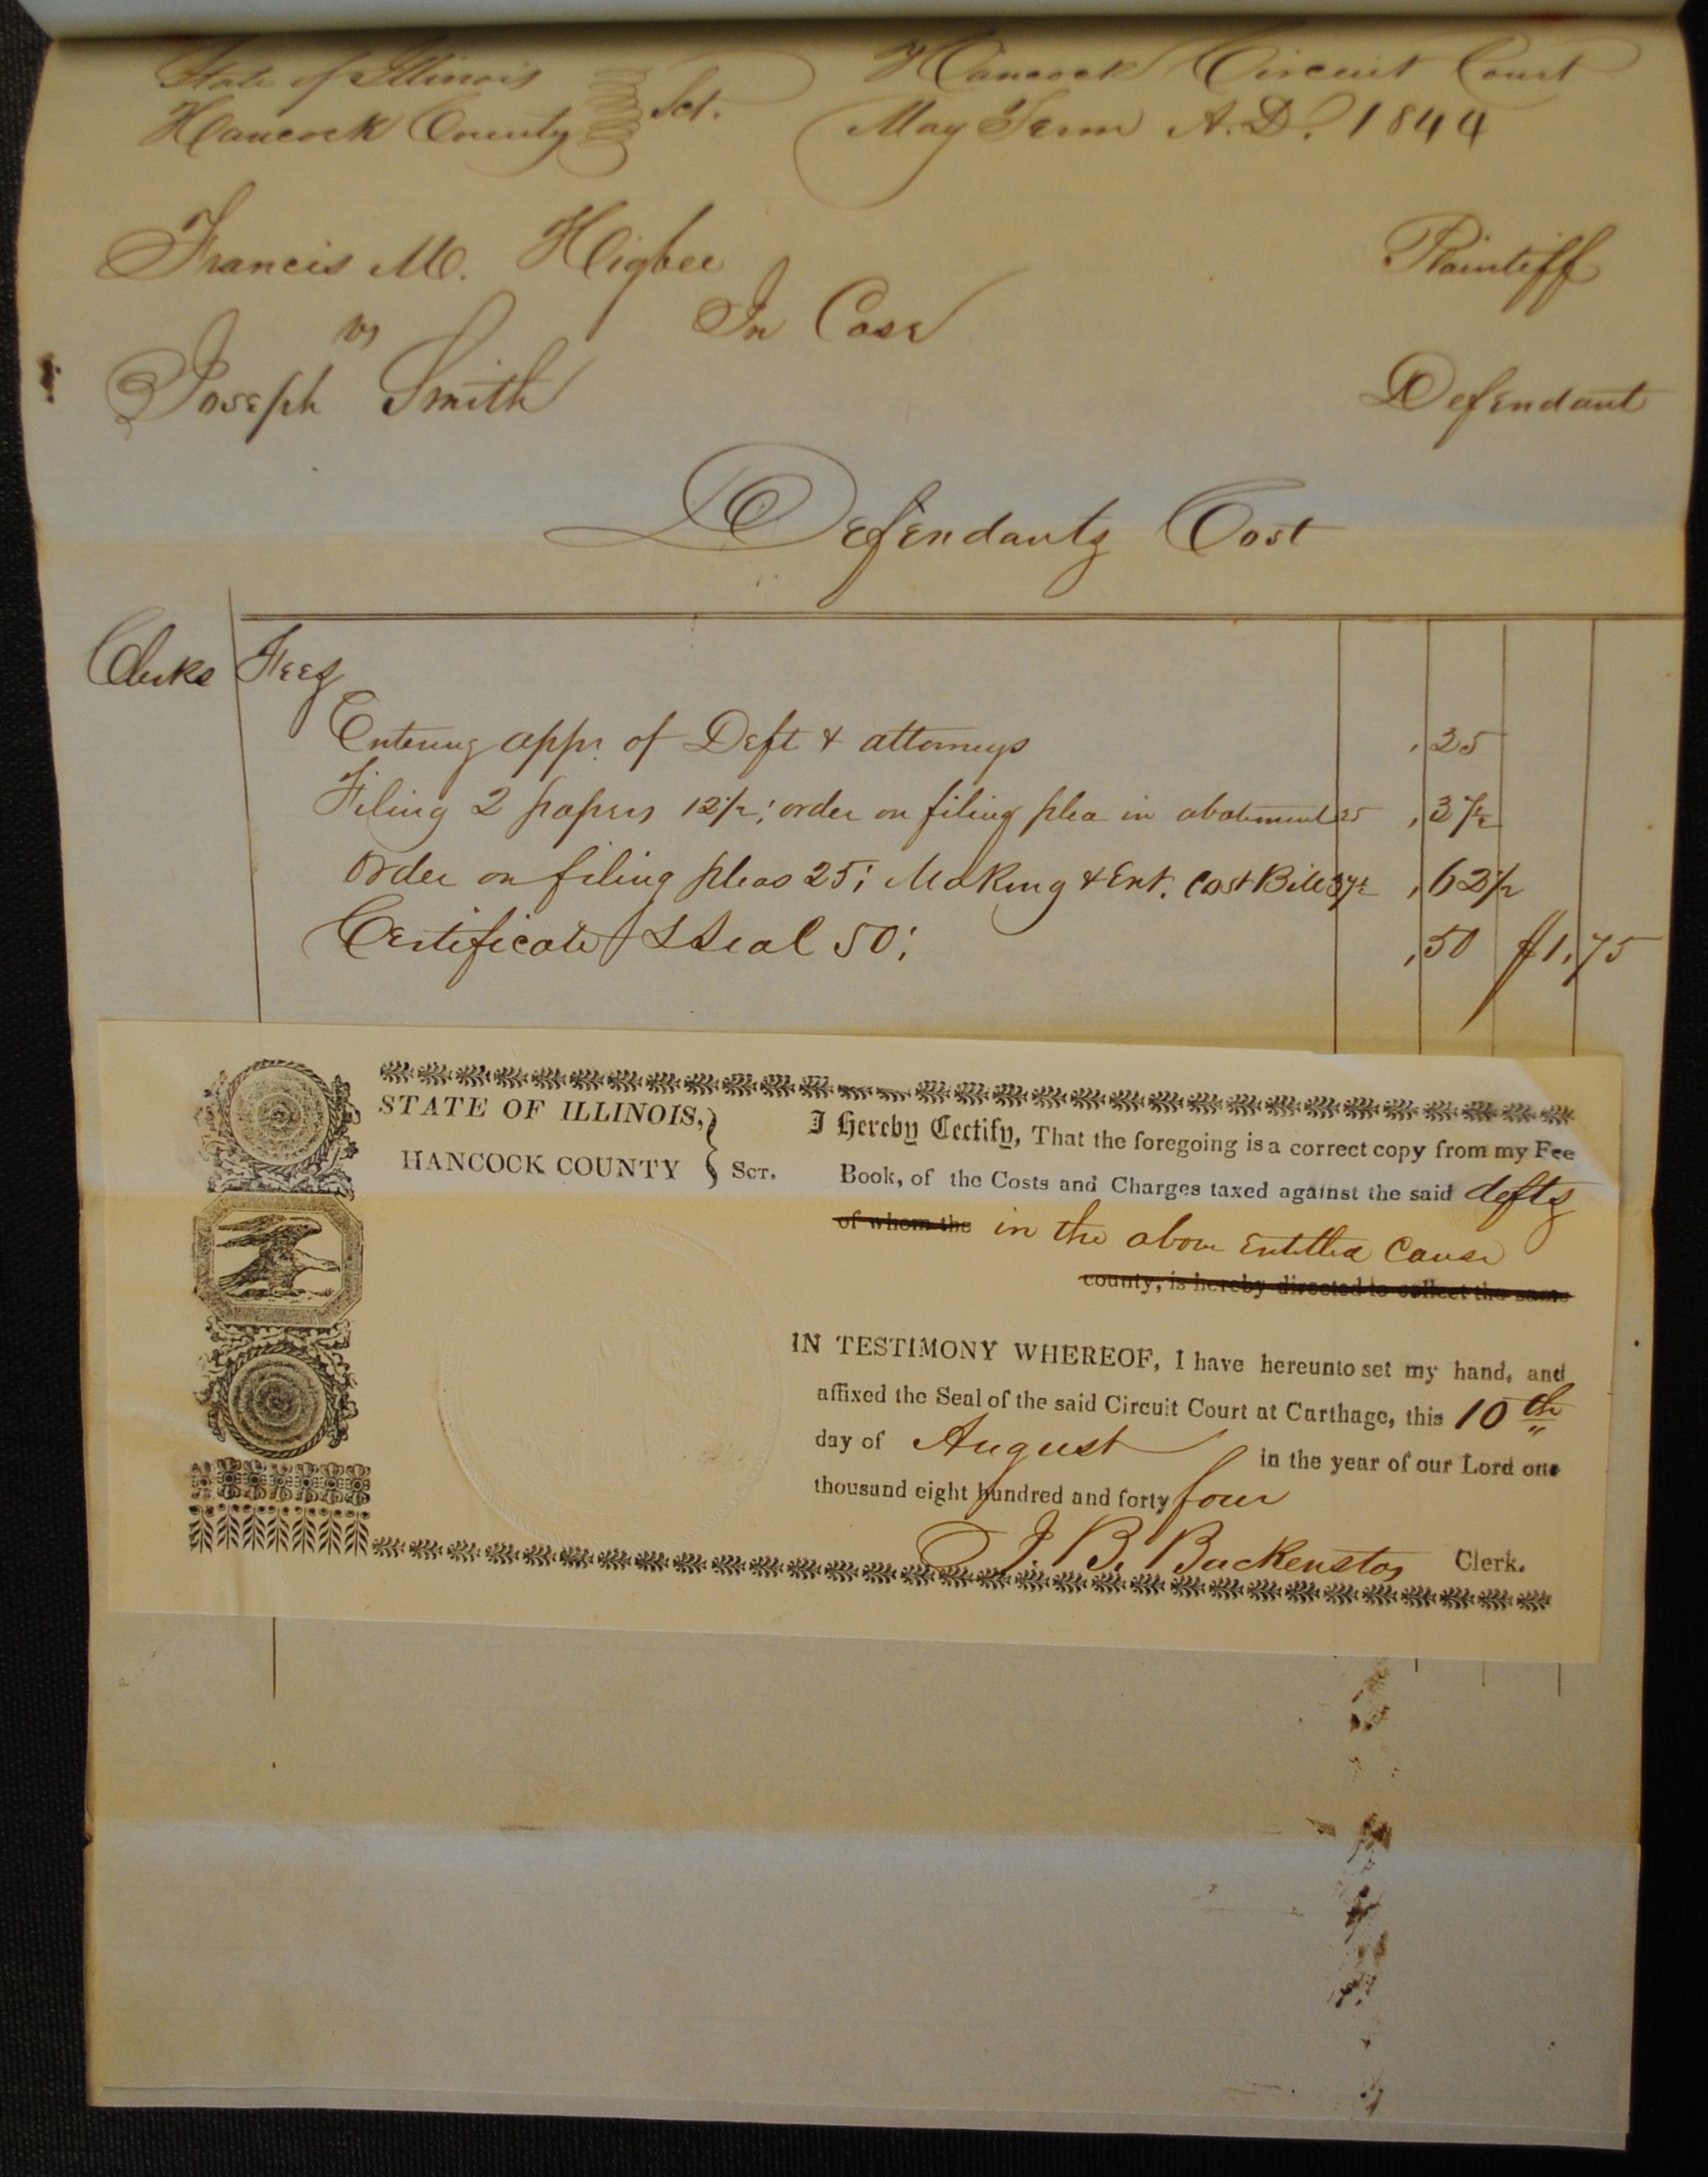 State of Illinois } Sct. Hancock Circuit Court
Hancock County } May Term A.D. 1844
Francis M. Higbee Plaintiff
vs In Case
Joseph Smith Defendant
Defendants Cost
Clerks Fees
Entering appr. of Deft & attorneys ,25
Filing 2 papers 12½; order on filing plea in abatement 25 ,37½
order on filing pleas 25; Making & Ent. Cost Bill 37½ ,62½
Certificate & Seal 50; ,50 $1,75
STATE OF ILLINOIS, } I Hereby Certify, That the foregoing is a correct copy from my Fee
HANCOCK COUNTY } Sct. Book, of the Costs and Charges taxed against the said defts
of whom the in the above Entitled Cause
county, is hereby directed to collect the same
IN TESTIMONY WHEREOF, I have hereunto set my hand, and
affixed the Seal of the said Circuit Court at Carthage, this 10th
day of August in the year of our Lord one
thousand eight hundred and forty four
J. B. Backenstos Clerk.